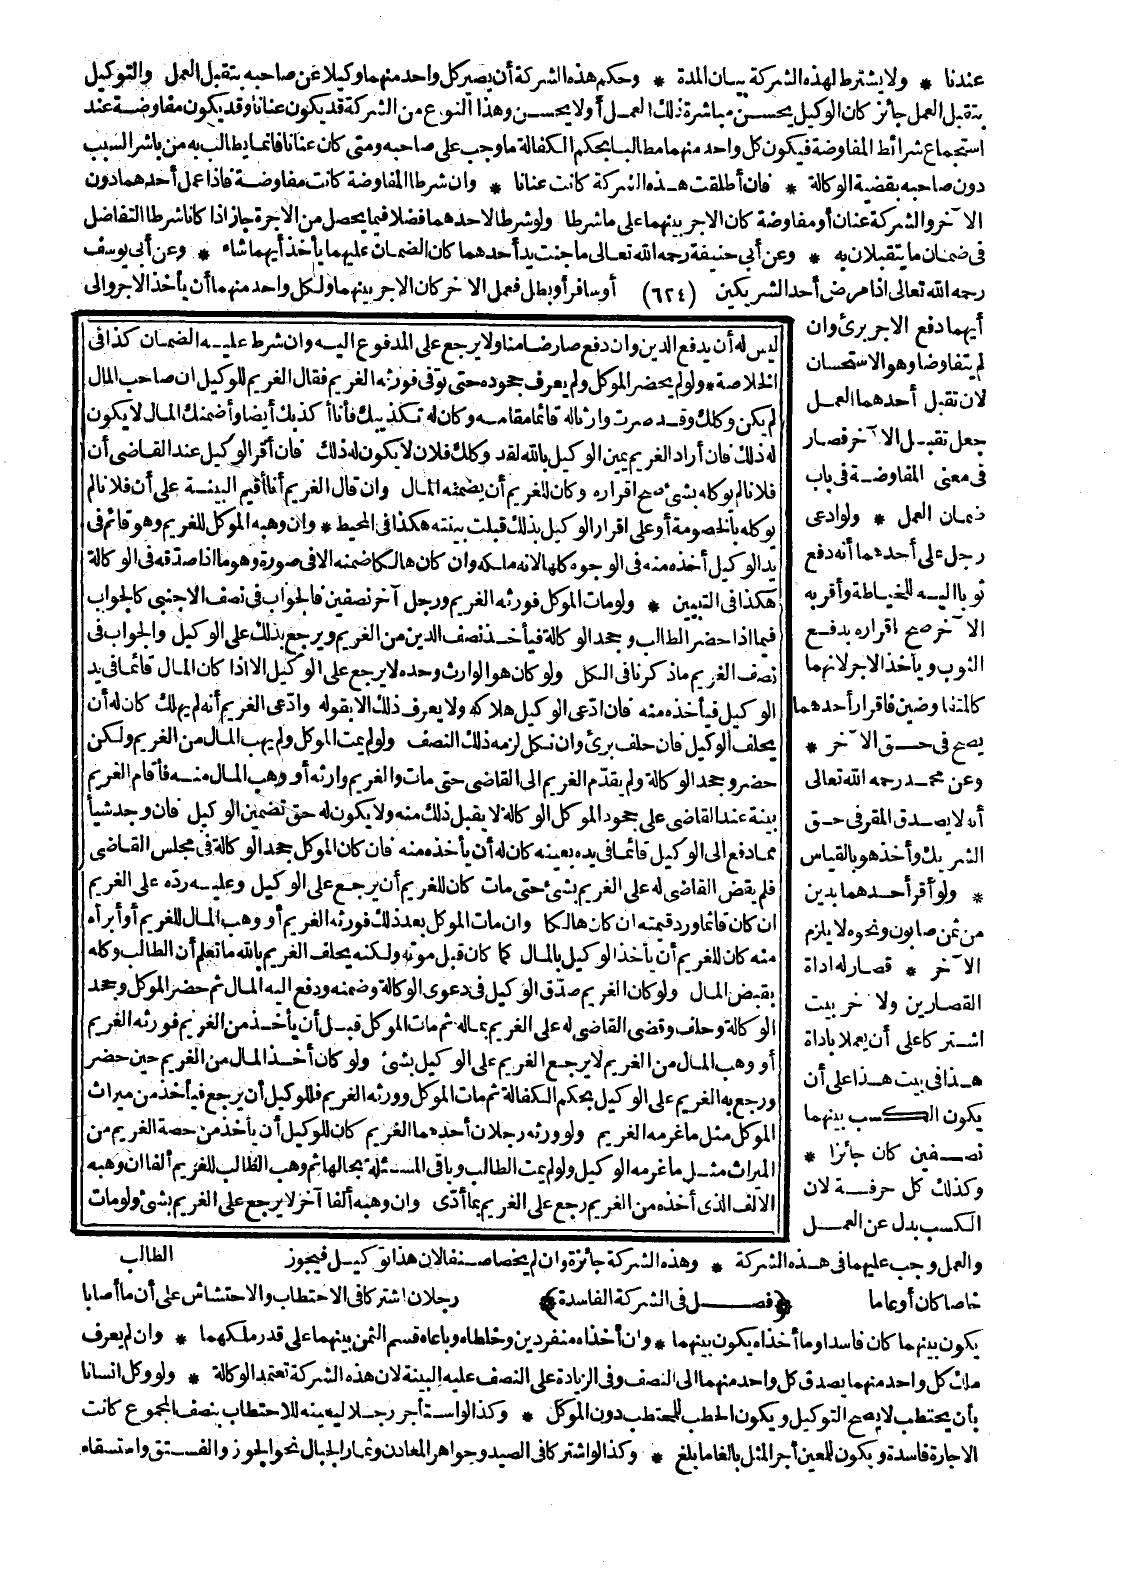 عندنا * ولا يشترط لهذه الشركة بيان المدة * وحكم هذه الشركة أن يصير كل واحد منهما وكيلا عن صاحبه بتقبل العمل والتوكيل
بتقبل العمل جائز كان الوكيل يحسن مباشرة ذلك العمل أولا يحسن وهذا النوع من الشركة قد يكون عنانا وقد يكون مفاوضة عند
استجماع شرائط المفاوضة فيكون كل واحد منهما مطالبا بحكم الكفالة ما وجب على صاحبه ومتى كان عنانا فانما يطالب به من باشر السبب
دون صاحبه بقضية الوكالة * فان أطلقت هذه الشركة كانت عنانا * وان شرطا المفاوضة كانت مفاوضة فاذا عمل أحدهما دون
الآخر والشركة عنان أو مفاوضة كان الاجر بينهما على ما شرطا ولو شرطا لاحدهما فضلا فيما يحصل من الاجرة جاز اذا كانا شرطا التفاضل
فى ضمان ما يتقبلان به * وعن أبى حنيفة رحمه الله تعالى ما جنت يد أحدهما كان الضمان عليهما يأخذ أيهما شاء * وعن أبى يوسف
رحمه الله تعالى اذا مرض أحد الشريكين (٦٢٤) أو سافر أو بطال فعمل الآخر كان الاجر بينهما ولكل واحد منهما أن يأخذ الاجر والى
أيهما دفع الاجر برئ وان
لم يتفاوضا وهو الاستحسان
لان تقبل أحدهما العمل
جعل تقبل الآخر فصار
فى معنى المفاوضة فى باب
ضمان العمل * ولو ادعى
رجل على أحدهما أنه دفع
ثوبا اليه للخياطة وأقر به
الآخر صح اقراره بدفع
الثوب ويأخذ الاجر لانهما
كالمتفاوضين فاقرار أحدهما
يصح فى حق الآخر *
وعن محمد رحمه الله تعالى
أنه لا يصدق المقر فى حق
الشريك وأخذ هو بالقياس
* ولو أقر أحدهما بدين
من ثمن صابون ونحوه لا يلزم
الآخر * قصار له اداة
القصارين ولآخر بيت
اشتركا على أن يعملا باداة
هذا فى بيت هذا على أن
يكون الكسب بينهما
نصفين كان جائزا *
وكذلك كل حرفة لان
الكسب بدل عن العمل
ليس له أن يدفع الدين وان دفع صار ضامنا ولا يرجع على المدفوع اليه وان شرط عليه الضمان كذا فى
الخلاصة * ولو لم يحضر الموكل ولم يعرف جحوده حتى توفى فورثه الغريم فقال الغريم للوكيل ان صاحب المال
لم يكن وكلك وقد صرت وارثا له قائما مقامه وكان له تكذيبك فأنا أكذبك أيضا وأضمنك المال لا يكون
له ذلك فان أراد الغريم يمين الوكيل بالله لقد وكلك فلان لا يكون له ذلك فان أقر الوكيل عند القاضى أن
فلانا لم يوكله بشئ صح اقراره وكان للغريم أن يضمنه المال وان قال الغريم أنا أقيم البينة على أن فلانا لم
يوكله بالخصومة أو على اقرار الوكيل بذلك قبلت بينته هكذا فى المحيط * وان وهبه الموكل للغريم وهو قائم فى
يد الوكيل أخذه منه فى الوجوه كلها لانه ملكه وان كان هالكا ضمنه الا فى صورة وهو ما اذا صدقه فى الوكالة
هكذا فى التبيين * ولو مات الموكل فورثه الغريم ورجل آخر نصفين فالجواب فى نصف الاجنبى كالجواب
فيما اذا حضر الطالب وجحد الوكالة فيأخذ نصف الدين من الغريم ويرجع بذلك على الوكيل والجواب فى
نصف الغريم ما ذكرنا فى الكل ولو كان هو الوارث وحده لا يرجع على الوكيل الا اذا كان المال قائما فى يد
الوكيل فيأخذه منه فان ادّعى الوكيل هلاكه ولا يعرف ذلك الا بقوله وادّعى الغريم أنه لم يهلك كان له أن
يحلف الوكيل فان حلف برئ وان نكل لزمه ذلك النصف ولو لم يمت الموكل ولم يهب المال من الغريم ولكن
حضر وجحد الوكالة ولم يقدّم الغريم الى القاضى حتى مات والغريم وارثه أو وهب المال منه فأقام الغريم
بينة عند القاضى على جحود الموكل الوكالة لا يقبل ذلك منه ولا يكون له حق تضمين الوكيل فان وجد شيأ
مما دفع الى الوكيل قائما فى يده بعينه كان له أن يأخذه منه فان كان الموكل جحد الوكالة فى مجلس القاضى
فلم يقض القاضى له على الغريم بشئ حتى مات كان للغريم أن يرجع على الوكيل وعليه ردّه على الغريم
ان كان قائما ورد قيمته ان كان هالكا وان مات الموكل بعد ذلك فورثه الغريم أو وهب المال للغريم أو أبرأه
منه كان للغريم أن يأخذ الوكيل بالمال كما كان قبل موته ولكنه يحلف الغريم بالله ما تعلم أن الطالب وكله
بقبض المال ولو كان الغريم صدّق الوكيل فى دعوى الوكالة وضمنه ودفع اليه المال ثم حضر الموكل وجحد
الوكالة وحلف وقضى القاضى له على الغريم بماله ثم مات الموكل قبل أن يأخذ من الغريم فورثه الغريم
أو وهب المال من الغريم لا يرجع الغريم على الوكيل بشئ ولو كان أخذ المال من الغريم حين حضر
ورجع به الغريم على الوكيل بحكم الكفالة ثم مات الموكل وورثه الغريم فللوكيل أن يرجع فيأخذ من ميراث
الموكل مثل ما غرمه الغريم ولو ورثه رجلان أحدهما الغريم كان للوكيل أن يأخذ من حصة الغريم من
الميراث مثل ما غرمه الوكيل ولو لم يمت الطالب وباقى المسئلة بحالها ثم وهب الطالب للغريم ألفا ان وهبه
الالف الذى أخذه من الغريم رجع على الغريم بما أدّى وان وهبه ألفا آخر لا يرجع على الغريم بشئ ولو مات
الطالب
والعمل وجب عليهما فى هذه الشركة * وهذه الشركة جائزة وان لم يخصا صنفا لان هذا توكيل فيجوز
خاصا كان أو عاما ﴿فصل فى الشركة الفاسدة﴾ رجلان اشتركا فى الاحتطاب والاحتشاش على أن ما أصابا
يكون بينهما كان فاسدا وما أخذاه يكون بينهما * وان أخذاه منفردين وخلطاه وباعاه قسم الثمن بينهما على قدر ملكهما * وان لم يعرف
ملك كل واحد منهما يصدق كل واحد منهما الى النصف وفى الزيادة على النصف عليه البينة لان هذه الشركة تعتمد الوكالة * ولو وكل انسانا
بأن يحتطب لا يصح التوكيل ويكون الحطب للمحتطب دون الموكل * وكذا لو استأجر رجلا ليعينه للاحتطاب بنصف المجموع كانت
الاجارة فاسدة ويكون للمعين أجر المثل بالغا ما بلغ * وكذا لو اشتركا فى الصيد وجواهر المعادن وثمار الجبال نحو الجوز والفستق واستسقاء